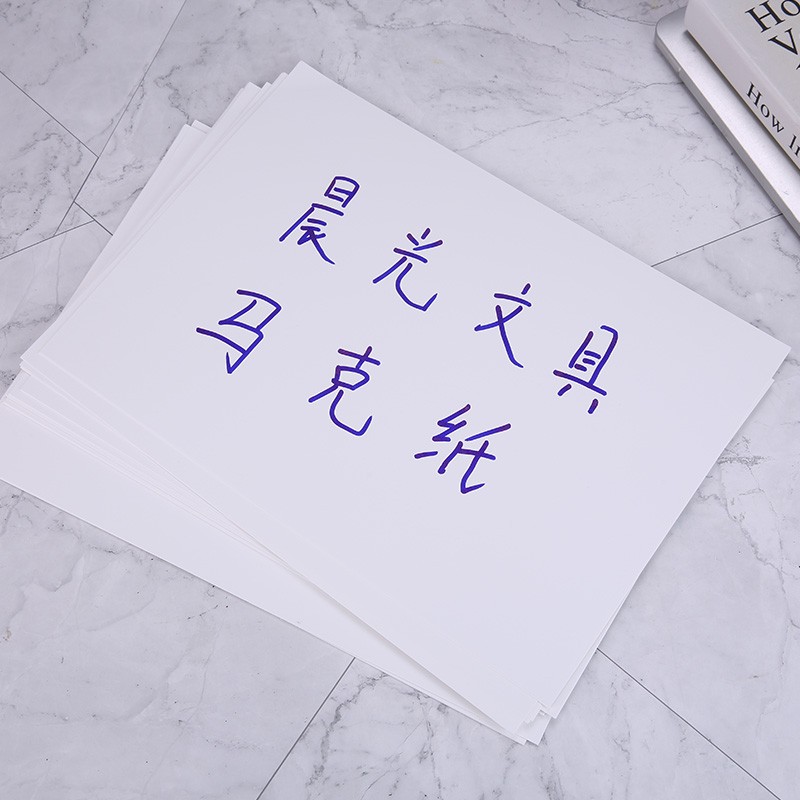 晨光文具
马克纸
Ho
V
How In